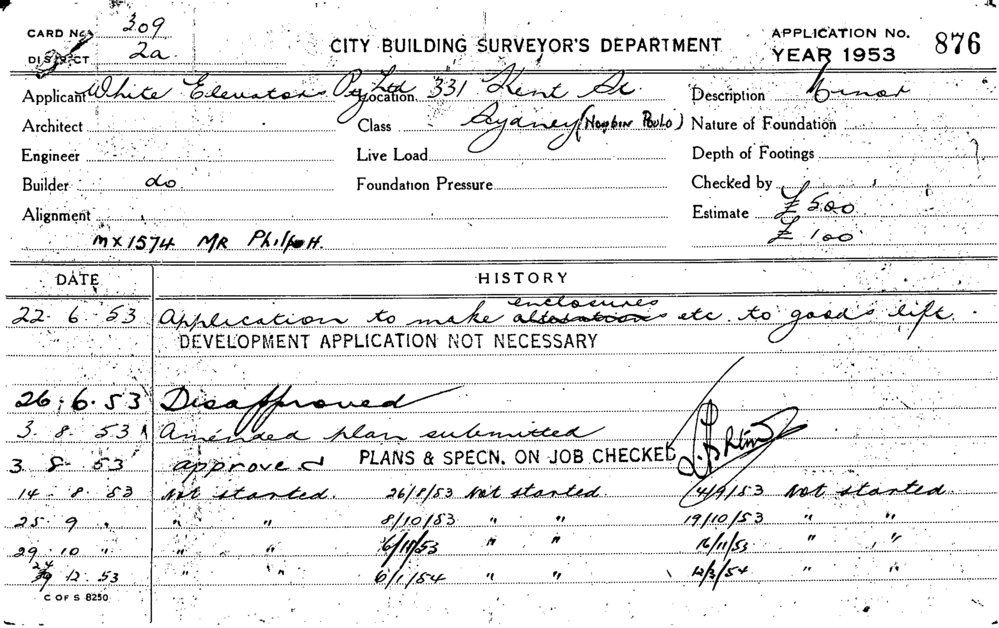 CARD No. 309
DISTRICT 2a
CITY BUILDING SURVEYOR'S DEPARTMENT
APPLICATION No. 876
YEAR 1953
Applicant White Elevators Pty Ltd Location 331 Kent St. Description Minor
Architect Class Sydney (Nowbin Poulo) Nature of Foundation
Engineer Live Load Depth of Footings
Builder do Foundation Pressure Checked by
Alignment Estimate £500
MX1574 MR Philpott. £100
DATE HISTORY
22.6.53 Application to make enclosures alterations etc. to goods lift.
DEVELOPMENT APPLICATION NOT NECESSARY
26.6.53 Disapproved
3.8.53 Amended plan submitted
3.8.53 approved PLANS & SPECN. ON JOB CHECKED
14.8.53 Not started. 26/8/53 Not started. 14/9/53 Not started.
25.9 " " " 8/10/53 " " 19/10/53 " "
29.10 " " " 6/11/53 " " 16/11/53 " "
24.12.53 " " 6/1/54 " " 12/3/54 " "
C OF S 8250